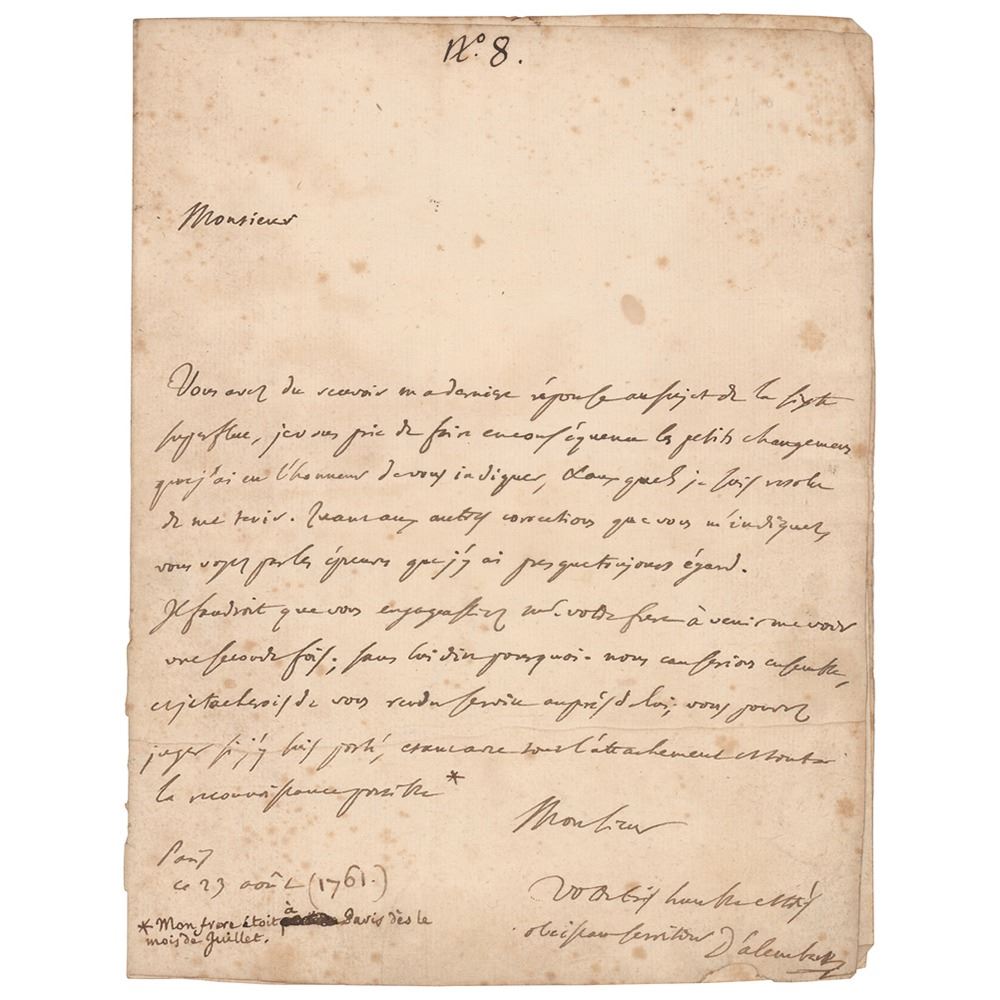 N.º 8.
Monsieur
Vous avez du recevoir ma derniere réponse au sujet de la sixte
superflue, je vous prie de faire en conséquence les petits changemens
que j'ai eu l'honneur de vous indiquer, auxquels je suis resolu
de me tenir. quant aux autres corrections que vous m'indiquez
vous voyez par les épreuves que j'y ai presque toujours égard.
Il faudroit que vous engageassiez mr. votre frere à venir me voir
une seconde fois, sans lui dire pourquoi. nous causerions ensemble,
et je tacherois de vous rendre service auprès de lui; vous pouvez
juger si j'y suis porté, étant avec tout l'attachement et toute
la reconnoissance possible *
Monsieur
Paris
ce 23 août (1761.)
Votre très humble et très
obeissant serviteur D'alembert
* Mon frere étoit à Paris dès le
mois de Juillet.